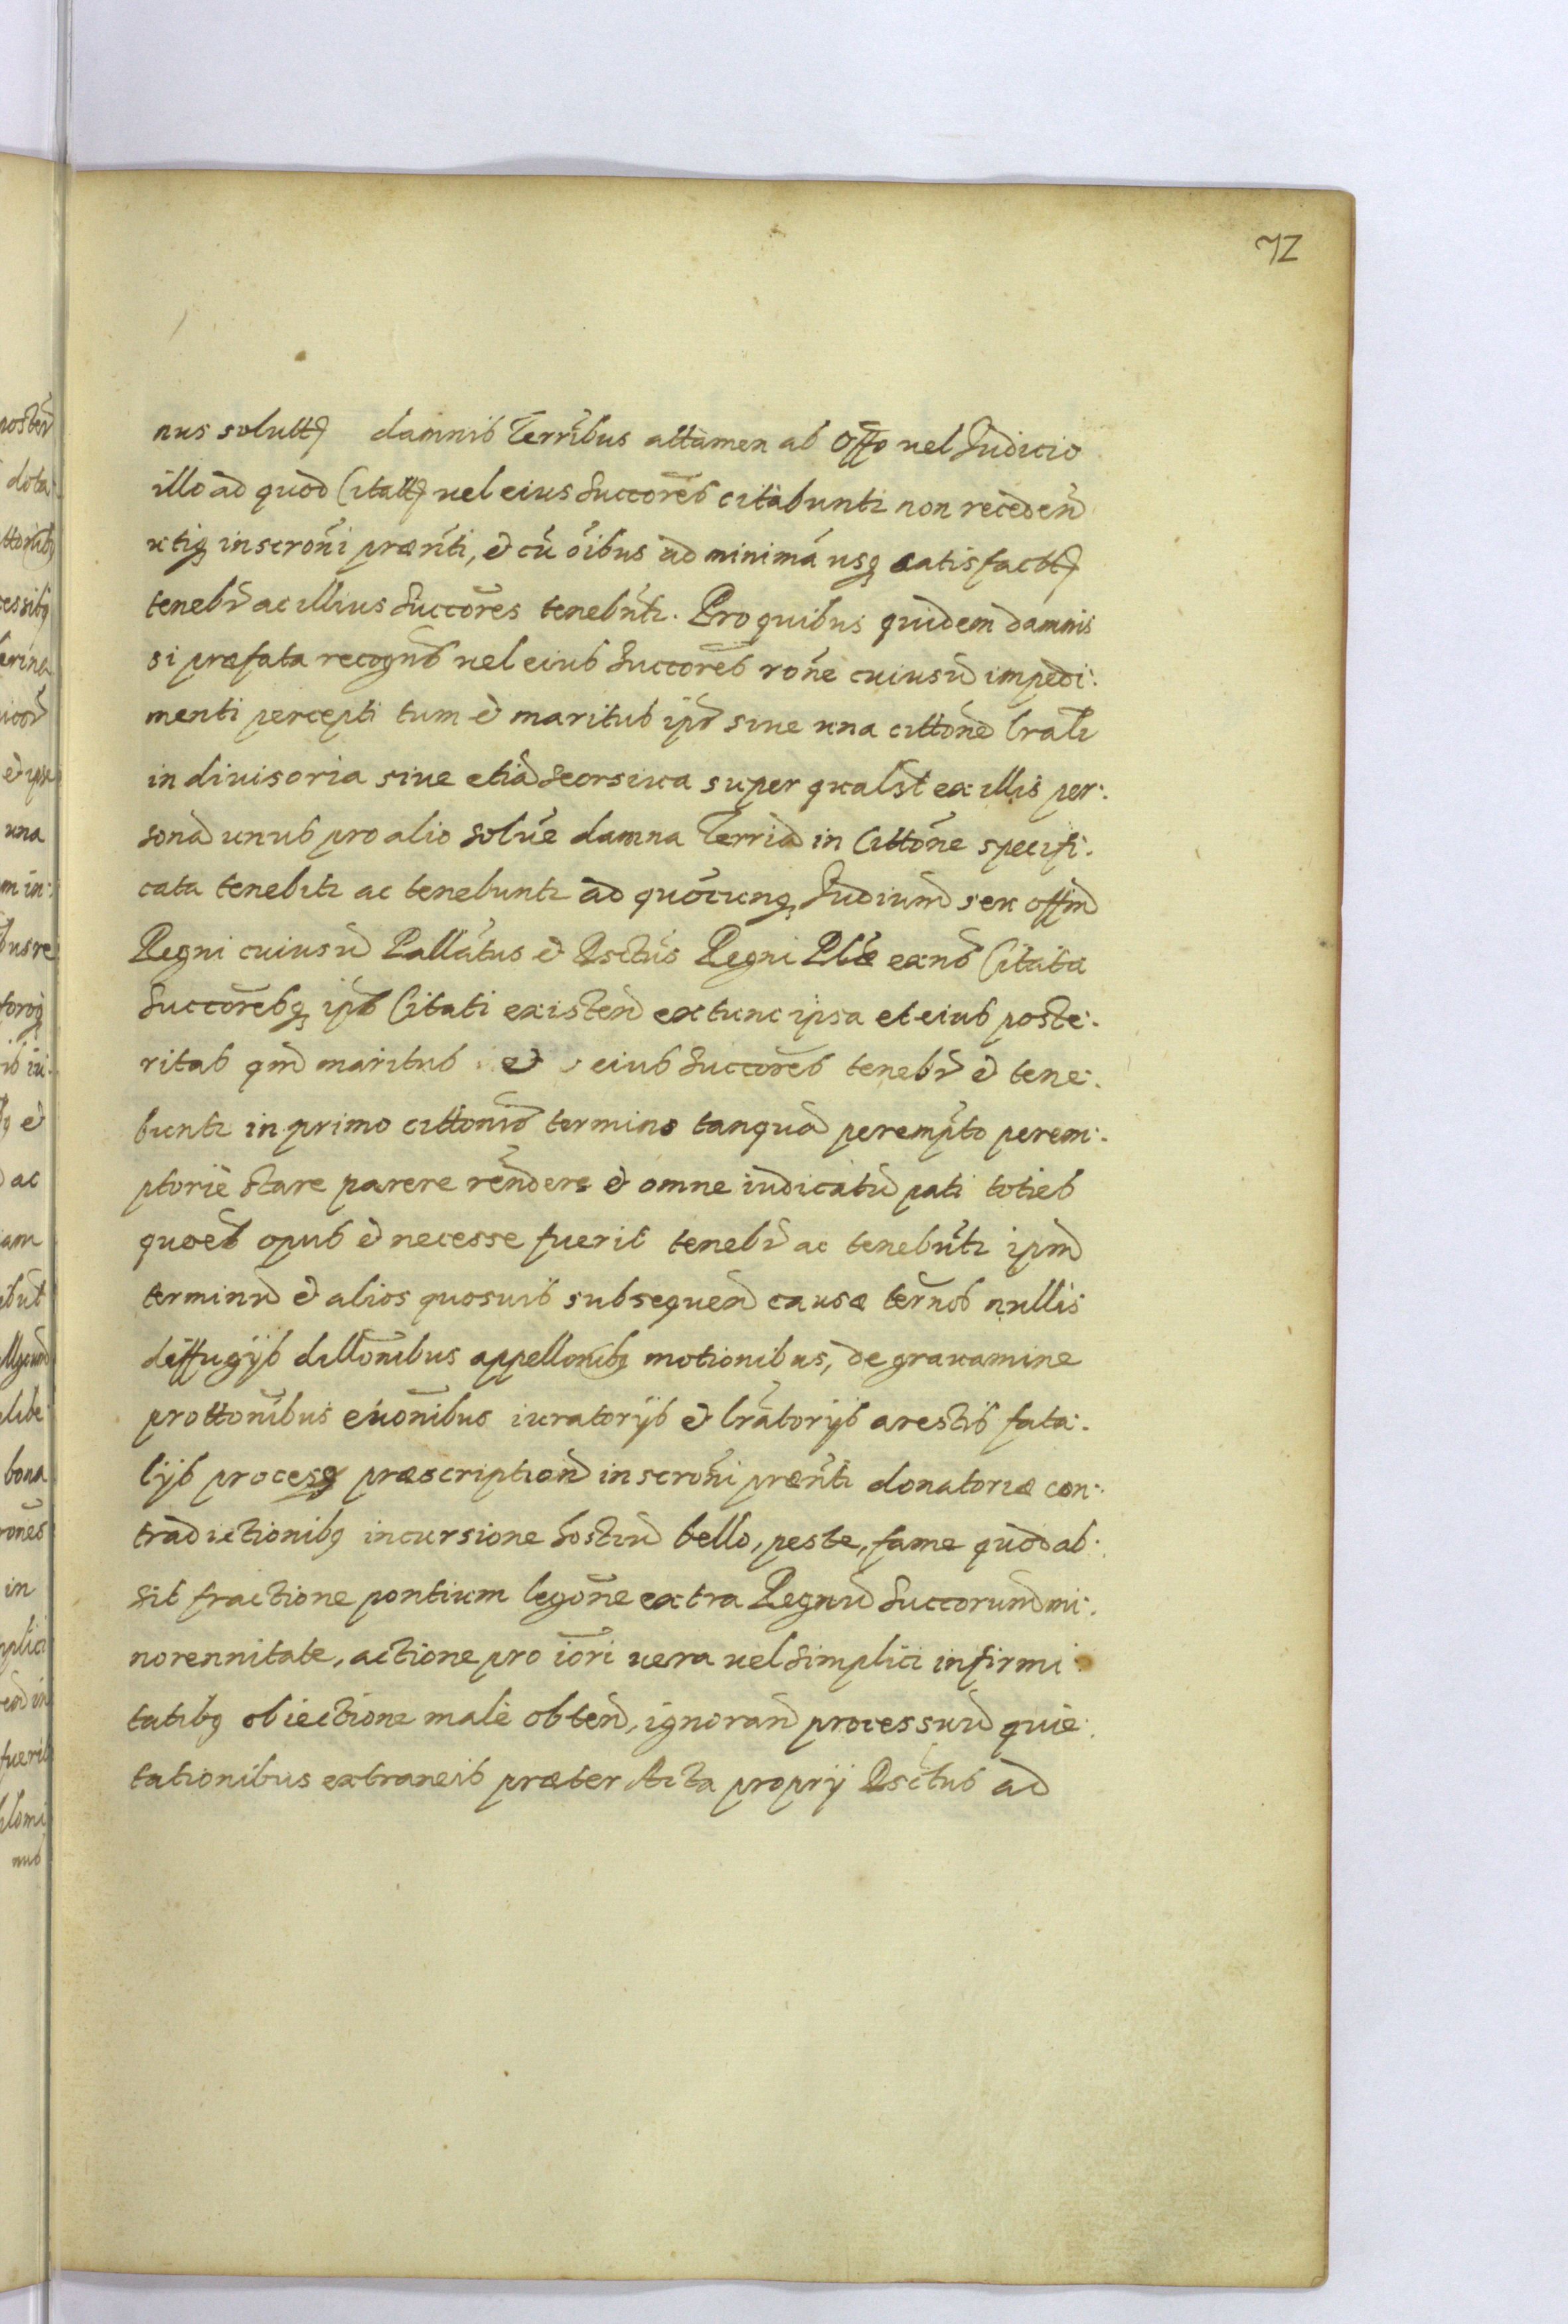 72
nus solutt damnis Terribus attamen ab offo vel Judicio
illo ad quod Citatt vel eius Succores citabunti non recedend
utiq inscroni praenti, et cu oibus ad minima usq satisfactt
tenebr ac illius Succores tenebunti. Pro quibus quidem damnis
si praefata recogns vel eius Succores rone cuiusvd impedi:
menti percepti tum et maritus ips sive una cittone lrali
in divisoria sive etia seorsiva super qualst ex illis per:
sona unus pro alio solue damna Terria in Cittone specifi:
cata tenebiti ac tenebunti ad quocunq Judicium seu offm
Regni cuiusvd Pallatus et Dsctus Regni Plae exns Citata
Succoresq ips Citati existend extunc ipsa et eius poste:
ritas qm maritus et eius Succores tenebr et tene:
bunti in primo cittonis termino tanqua perempto perem:
ptorie stare parere rendere et omne iudicatu pati toties
quoes opus et necesse fuerit tenebr ac tenebunti ipm
terminu et alios quosvis subsequend causae ternos nullis
diffugijs dillonibus appellonibq motionibus, de gravamine
prottonibus evonibus iuratorijs et lratorijs arestis fata:
lijs procesq praescription inscroni praenti donatoriae con:
tradictionibq incursione hostiu bello, peste, fame quod ab:
sit fractione pontium legone extra Regnu Succorum mi:
norennitate, actione pro iori vera vel simplici infirmi
tatibq obiectione male obtend, ignorand processuu quie:
tationibus extraneis praeter Acta proprij Dsctus ad